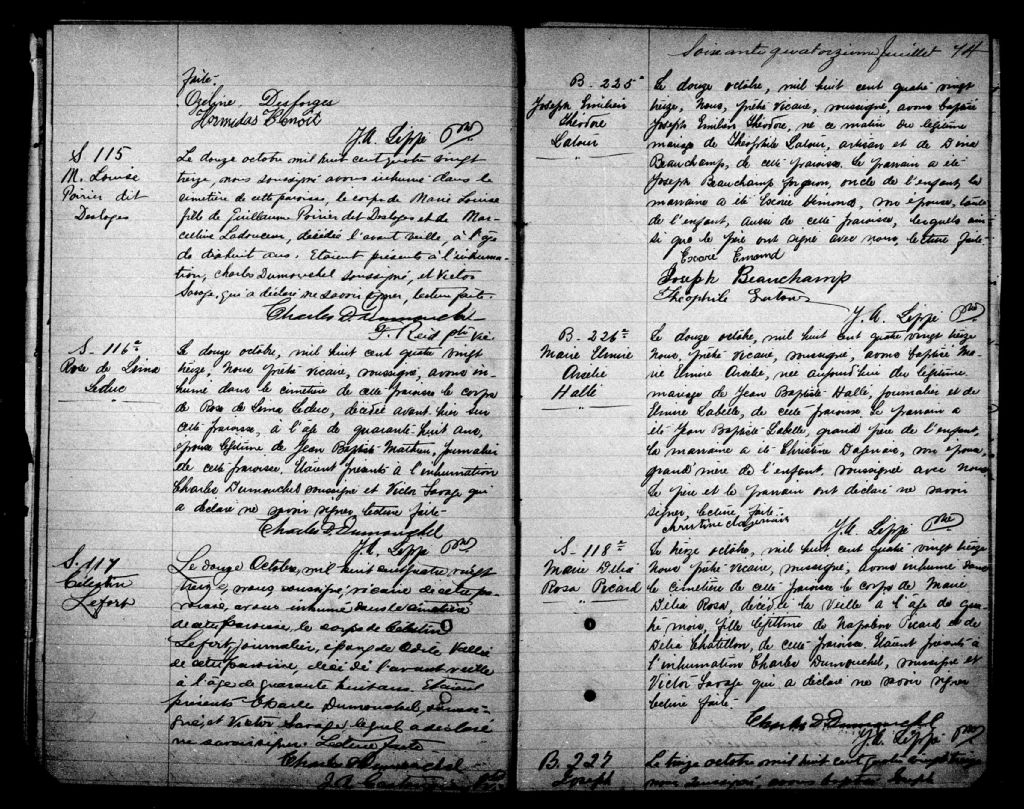 faite.
Ozeline Desforges
Hormidas Benoit
J.U. Lippé Ptre
S 115
M. Louise
Poirier dit
Desloges
Le douze octobre mil huit cent quatre vingt
treize, nous soussigné avons inhumé dans le
cimetière de cette paroisse, le corps de Marie Louise
fille de Guillaume Poirier dit Desloges et de Mar-
celine Ladouceur, décédée l'avant veille, à l'âge
de dixhuit ans. Etaient présents à l'inhuma-
tion, Charles Dumouchel soussigné, et Victor
Savage, qui a déclaré ne savoir signer, lecture faite.
Charles D. Dumouchel
J. Reid ptre Vic.
S- 116e
Rose de Lima
Leduc
Le douze octobre, mil huit cent quatre vingt
treize, Nous prêtre vicaire, soussigné, avons in-
humé dans le cimetière de cette paroisse le corps
de Rose de Lima Leduc, décédée avant hier sur
cette paroisse, à l'âge de quarante huit ans,
épouse légitime de Jean Baptiste Mathieu, journalier
de cette paroisse. Etaient présents à l'inhumation
Charles Dumouchel soussigné et Victor Savage qui
a déclaré ne savoir signer lecture faite-
Charles D. Dumouchel
J.U. Lippé Ptre
S. 117
Célestin
Lefort
Le douze Octobre, mil huit cent quatre vingt
treize, nous soussigné, vicaire de cette pa-
roisse, avons inhumé dans le cimetière
de cette paroisse, le corps de Célestin
Lefort, journalier, époux de Adèle Vallée
de cette paroisse, décédé l'avant veille
à l'âge de quarante huit ans. Etaient
présents Charles Dumouchel, soussi-
gné, et Victor Savage, lequel a déclaré
ne savoir signer. Lecture faite
Charles D Dumouchel
Soixante quatorzième feuillet 74
B- 225e
Joseph Emilien
Théodore
Latour
Le douze octobre, mil huit cent quatre vingt
treize, Nous, prêtre vicaire, soussigné, avons baptisé
Joseph Emilien Théodore, né ce matin du légitime
mariage de Théophile Latour, artisan et de Dina
Beauchamp, de cette paroisse. Le parrain a été
Joseph Beauchamp forgeron, oncle de l'enfant, la
marraine a été Exorée Emond, son épouse, tante
de l'enfant, aussi de cette paroisse, lesquels ain-
si que le père ont signé avec nous, lecture faite-
Exore Emond
Joseph Beauchamp
Théophile Latour
J.U. Lippé Ptre
B- 226e
Marie Elmire
Arzélie
Hallé
Le douze octobre, mil huit cent quatre vingt treize
Nous prêtre vicaire, soussigné, avons baptisé Ma-
rie Elmire Arzélie, née aujourd'hui du légitime
mariage de Jean Baptiste Hallé, journalier et de
Elmire Labelle, de cette paroisse. Le parrain a
été Jean Baptiste Labelle, grand père de l'enfant,
la marraine a été Christine Dagenais, son épouse,
grand'mère de l'enfant, soussignée avec nous
Le père et le parrain ont déclaré ne savoir
signer, lecture faite-
Christine dagenais
J.U. Lippé Ptre
S- 118e
Marie Délia
Rosa Picard
Le treize octobre, mil huit cent quatre vingt treize
Nous prêtre vicaire, soussigné, avons inhumé dans
le cimetière de cette paroisse le corps de Marie
Délia Rosa, décédée la veille à l'âge de qua-
tre mois, fille légitime de Napoléon Picard et de
Délia Chatillon, de cette paroisse. Etaient présents à
l'inhumation Charles Dumouchel, soussigné et
Victor Savage qui a déclaré ne savoir signer
lecture faite-
Charles D. Dumouchel
J.U. Lippé Ptre
B. 227
Joseph
Le treize octobre mil huit cent quatre vingt treize
nous soussigné, avons baptisé Joseph